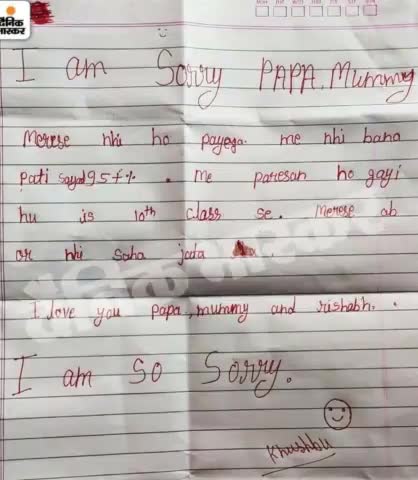 दैनिक
भास्कर
MON TUE WED THU FRI SAT SUN
I am Sorry PAPA, Mummy
Merese nhi ho payega. me nhi bana
pati sayad 95+%. me paresan ho gayi
hu is 10th class se. Merese ab
or nhi saha jata
दैनिक भास्कर
I love you papa, mummy and rishabh..
I am so Sorry.
Khushbu